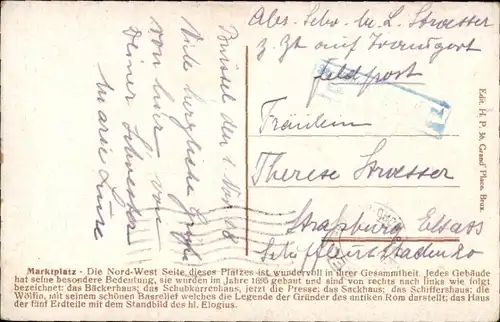 Abs. Schw. M. L. Stroesser
z. Zt auf Transport
Feldpost
Fräulein
Therese Stroesser
Straßburg Elsass
Schiffleutstaden
Brüssel den 1 Nov 18
Viele herzliche Grüße
von hier von
Deiner Schwester
Marie Luise
Edit. H. P. 36, Grand' Place, Brux.
Marktplatz - Die Nord-West Seite dieses Platzes ist wundervoll in ihrer Gesammtheit. Jedes Gebäude
hat seine besondere Bedeutung, sie wurden im Jahre 1695 gebaut und sind von rechts nach links wie folgt
bezeichnet: das Bäckerhaus; das Schubkarrenhaus, jetzt die Presse; das Sackhaus; das Schifferhaus; die
Wölfin, mit seinem schönen Basrelief welches die Legende der Gründer des antiken Rom darstellt; das Haus
der fünf Erdteile mit dem Standbild des hl. Elogius.